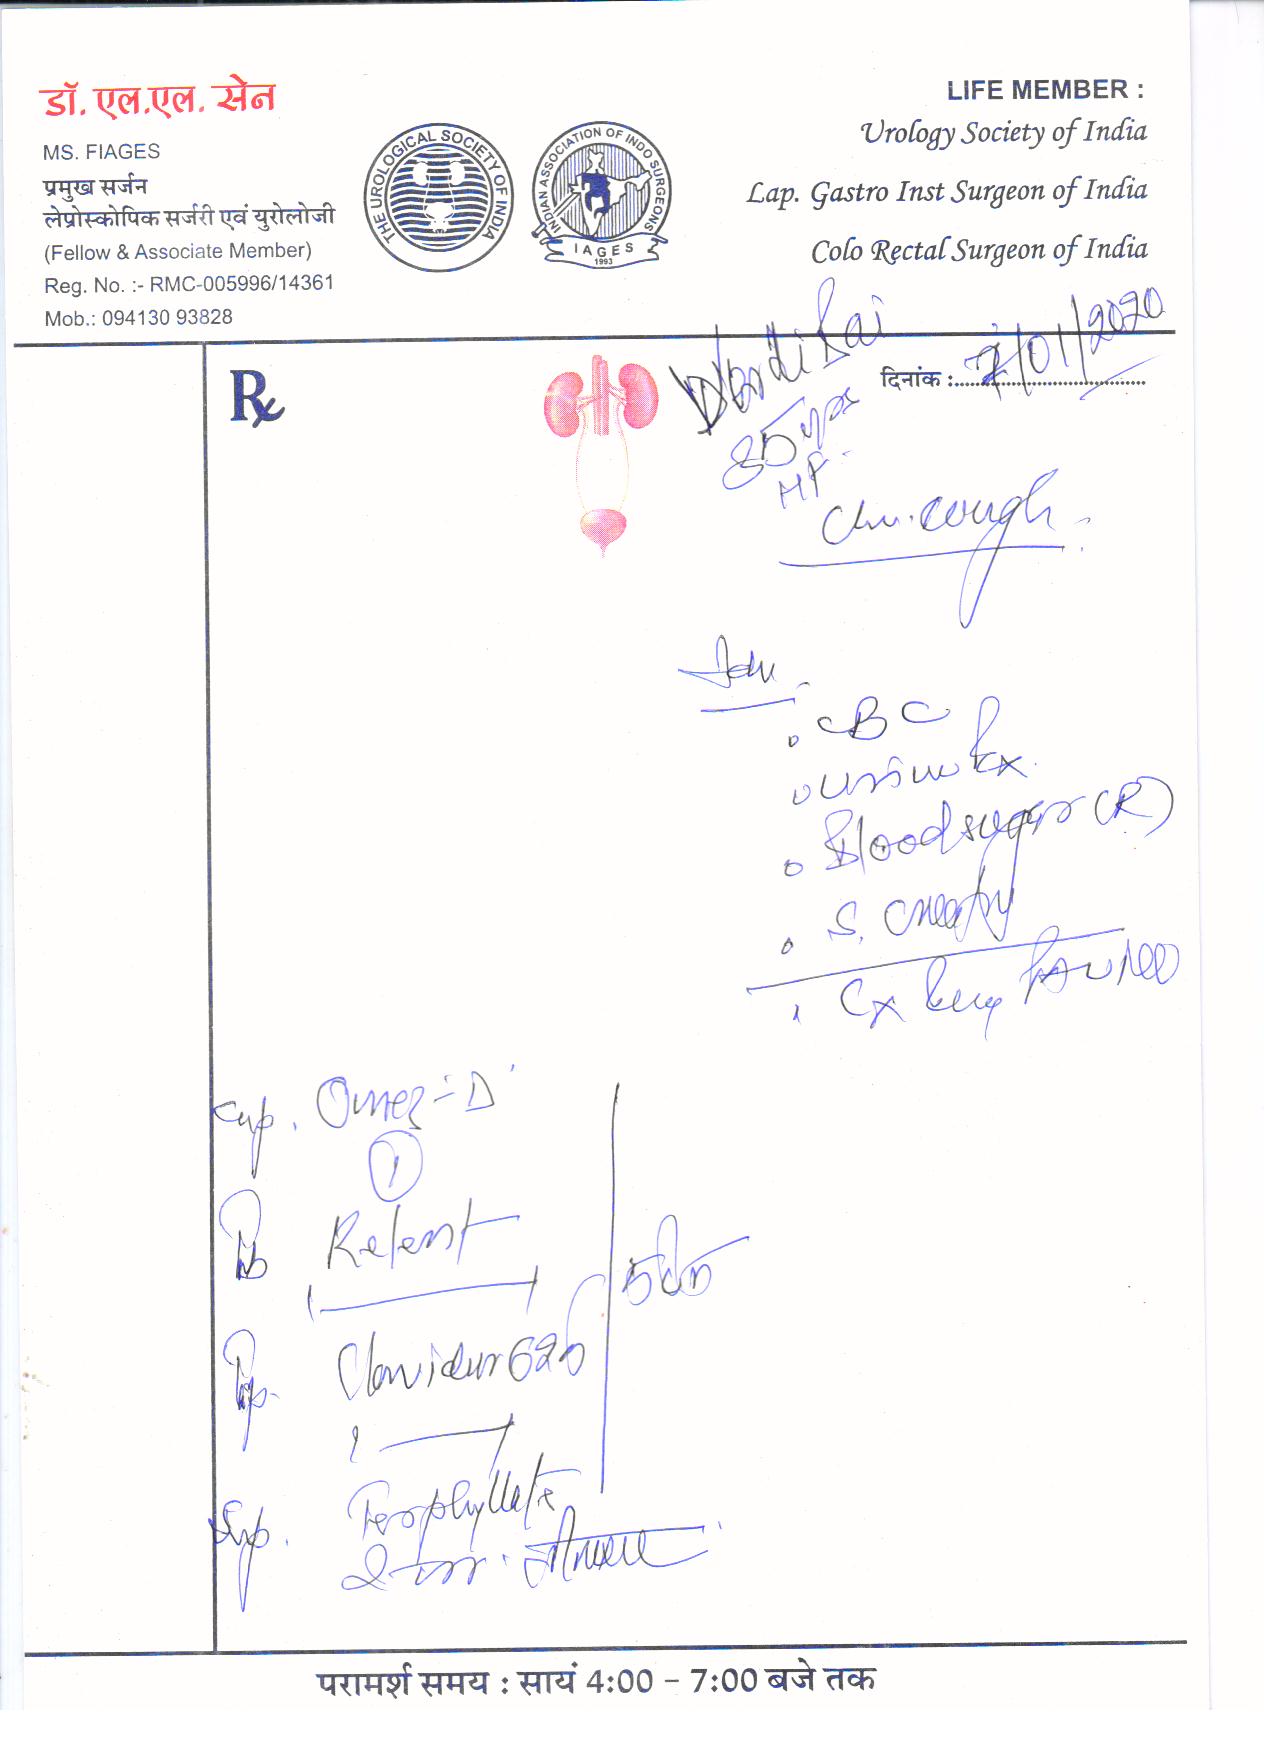 डॉ. एल.एल. सेन
MS. FIAGES
प्रमुख सर्जन
लेप्रोस्कोपिक सर्जरी एवं युरोलोजी
(Fellow & Associate Member)
Reg. No. :- RMC-005996/14361
Mob.: 094130 93828
THE UROLOGICAL SOCIETY OF INDIA
INDIAN ASSOCIATION OF INDO SURGEONS
IAGES
1993
LIFE MEMBER :
Urology Society of India
Lap. Gastro Inst Surgeon of India
Colo Rectal Surgeon of India
Rx
Bai
दिनांक : 7/01/2020
85 yrs
Chr. cough
CBC
Urine Ex
Blood sugar (R)
S.
Cap. Omez-D
1
Tab Relent
Clavidur 625
Syp.
परामर्श समय : सायं 4:00 - 7:00 बजे तक